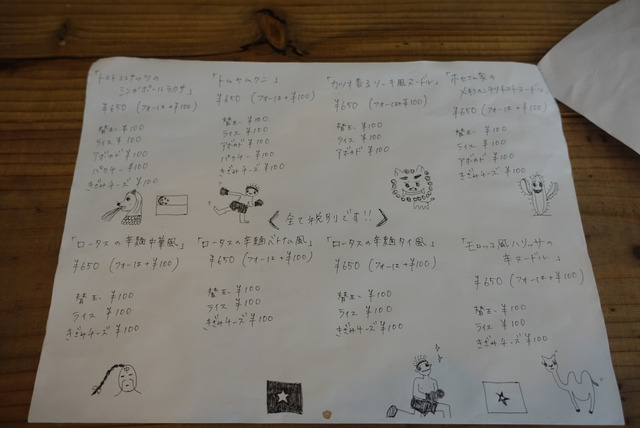 「トマトココナッツの
シンガポールラクサ」
¥650 (フォーは+¥100)
替玉 ¥100
ライス ¥100
アボカド ¥100
パクチー ¥100
きざみチーズ ¥100
「トムヤムクン」
¥650 (フォーは+¥100)
替玉 ¥100
ライス ¥100
アボカド ¥100
パクチー ¥100
きざみチーズ ¥100
「カツオ香るソーキ風ヌードル」
¥650 (フォーは+¥100)
替玉 ¥100
ライス ¥100
アボカド ¥100
¥650 (フォーは+¥100)
替玉 ¥100
ライス ¥100
アボカド ¥100
きざみチーズ ¥100
《全て税別です!!》
「ロータスの辛麺中華風」
¥650 (フォーは+¥100)
替玉 ¥100
ライス ¥100
きざみチーズ ¥100
「ロータスの辛麺ベトナム風」
¥650 (フォーは+¥100)
替玉 ¥100
ライス ¥100
きざみチーズ ¥100
「ロータスの辛麺タイ風」
¥650 (フォーは+¥100)
替玉 ¥100
ライス ¥100
きざみチーズ ¥100
「モロッコ風ハリッサの
辛ヌードル」
¥650 (フォーは+¥100)
替玉 ¥100
ライス ¥100
きざみチーズ ¥100